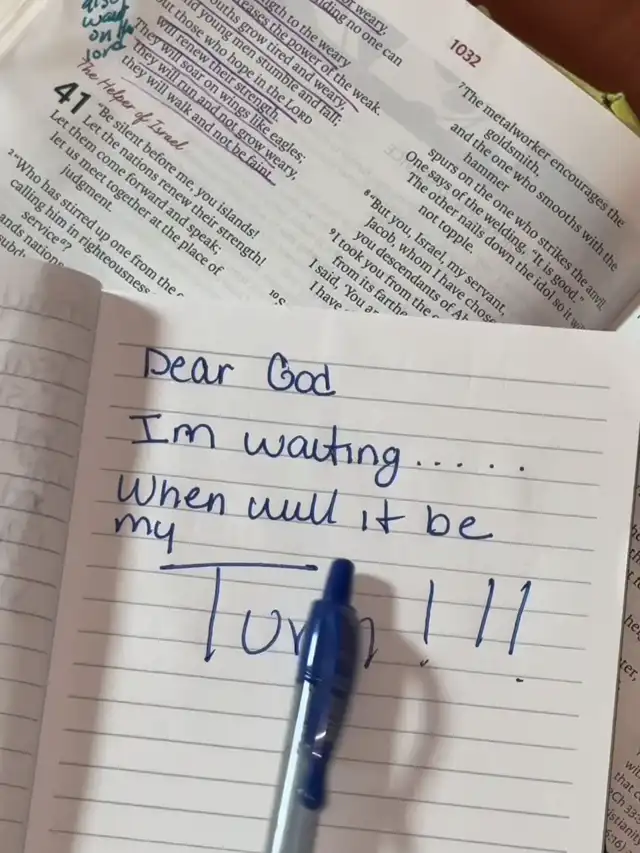 also
wait
on the
lord
ngth to the weary
creases the power of the weak.
ouths grow tired and weary,
nd young men stumble and fall;
but those who hope in the LORD
will renew their strength.
They will soar on wings like eagles;
they will run and not grow weary,
they will walk and not be faint.
The Helper of Israel
41 "Be silent before me, you islands!
Let the nations renew their strength!
Let them come forward and speak;
let us meet together at the place of
judgment.
2 "Who has stirred up one from the
calling him in righteousness
service?
ands nation
weary,
ding no one can
1032
7 The metalworker encourages the
goldsmith,
and the one who smooths with the
hammer
spurs on the one who strikes the anvil.
One says of the welding, "It is good."
The other nails down the idol so it w
not topple.
8 "But you, Israel, my servant,
Jacob, whom I have chose
you descendants of A
9 I took you from the
from its farthe
I said, 'You a
I have
10 S
Dear God
Im waiting.....
When will it be
my
Turn!!!
he
ter,
wi
that c
Ch 33:
istiani
6:16)